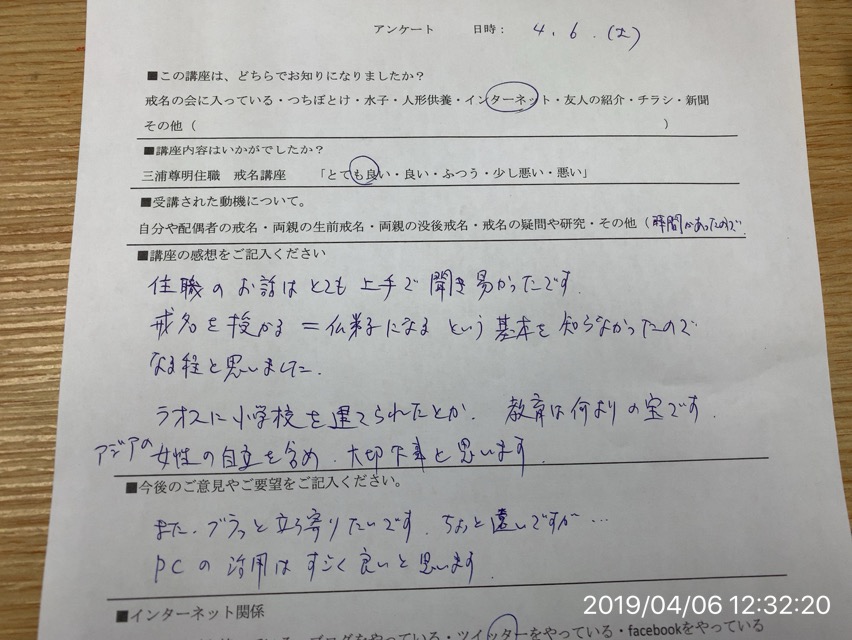 アンケート 日時： 4.6.(土)
■この講座は、どちらでお知りになりましたか？
戒名の会に入っている・つちぼとけ・水子・人形供養・インターネット・友人の紹介・チラシ・新聞
その他（ ）
■講座内容はいかがでしたか？
三浦尊明住職 戒名講座 「とても良い・良い・ふつう・少し悪い・悪い」
■受講された動機について。
自分や配偶者の戒名・両親の生前戒名・両親の没後戒名・戒名の疑問や研究・その他（時間があったので
■講座の感想をご記入ください
住職のお話はとても上手で聞き易かったです.
戒名を授かる＝仏弟子になるという基本を知らなかったので
なる程と思いました.
ラオスに小学校を建てられたとか. 教育は何よりの宝です.
アジアの女性の自立を含め.大切な事と思います.
■今後のご意見やご要望をご記入ください。
また.ブラっと立ち寄りたいです.ちょっと遠いですが…
PCの活用はすごく良いと思います.
■インターネット関係
ブログをやっている・ツイッターをやっている・facebookをやっている
2019/04/06 12:32:20